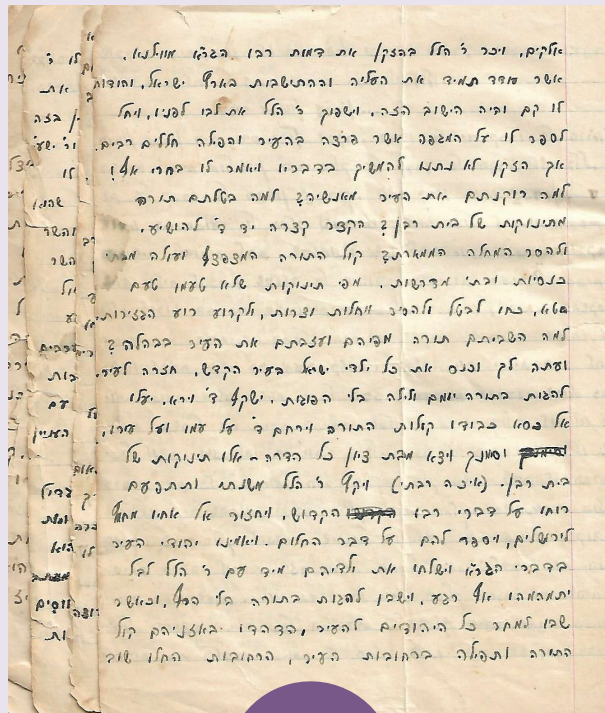 אלקים. ויכר ר' הלל בהזקן את דמות רבו הגר"א מווילנא,
אשר עודד תמיד את העליה וההתישבות בארץ ישראל, והודות
לו קם והיה הישוב הזה. וישפוך ר' הלל את לבו לפניו, ויחל
לספר לו על המגפה אשר פרצה בהעיר והפילה חללים רבים.
אך הזקן לא נתנו להמשיך בדבריו ויאמר לו בחרי אף!
למה רוקנתם את העיר מאנשיה? למה בטלתם תורת
תינוקות של בית רבן? הקצר קצרה יד ד' להושיע
ולהסר המחלה הממארת? קול התורה המצפצף ועולה מבתי
כנסיות ובתי מדרשות, מפי תינוקות שלא טעמו טעם
חטא, כחו לבטל ולהסיר מחלות וצרות, ולקרוע רוע הגזירות.
למה השביתם תורה מפיהם ועזבתם את העיר בבהלה?
ועתה לך וכנס את כל ילדי ישראל בעיר הקדש, חזרה לעיר
להגות בתורה יומם ולילה בלי הפוגות, ישקף ד' וירא, יעלו
אל כסא כבודו קולות התורה וירחם ד' על עמו ועל עירו,
וסמנך ויצא מבת ציון כל הדרה - אלו תינוקות של
בית רבן. (איכה רבתי) ויקץ ר' הלל משנתו ותתפעם
רוחו על דברי רבו הקדוש, ויחזור אל אחיו
לירושלים, ויספר להם על דבר החלום. ויאמינו יהודי העיר
בדברי הגר"א וישלחו את ילדיהם מיד עם ר' הלל לבל
יתמהמהו אף רגע, וישבו להגות בתורה בלי הרף, וכאשר
שבו למחר כל היהודים להעיר, הדהדו באזניהם קול
התורה ותפילה ברחובות העיר, הרחובות החלו שוב